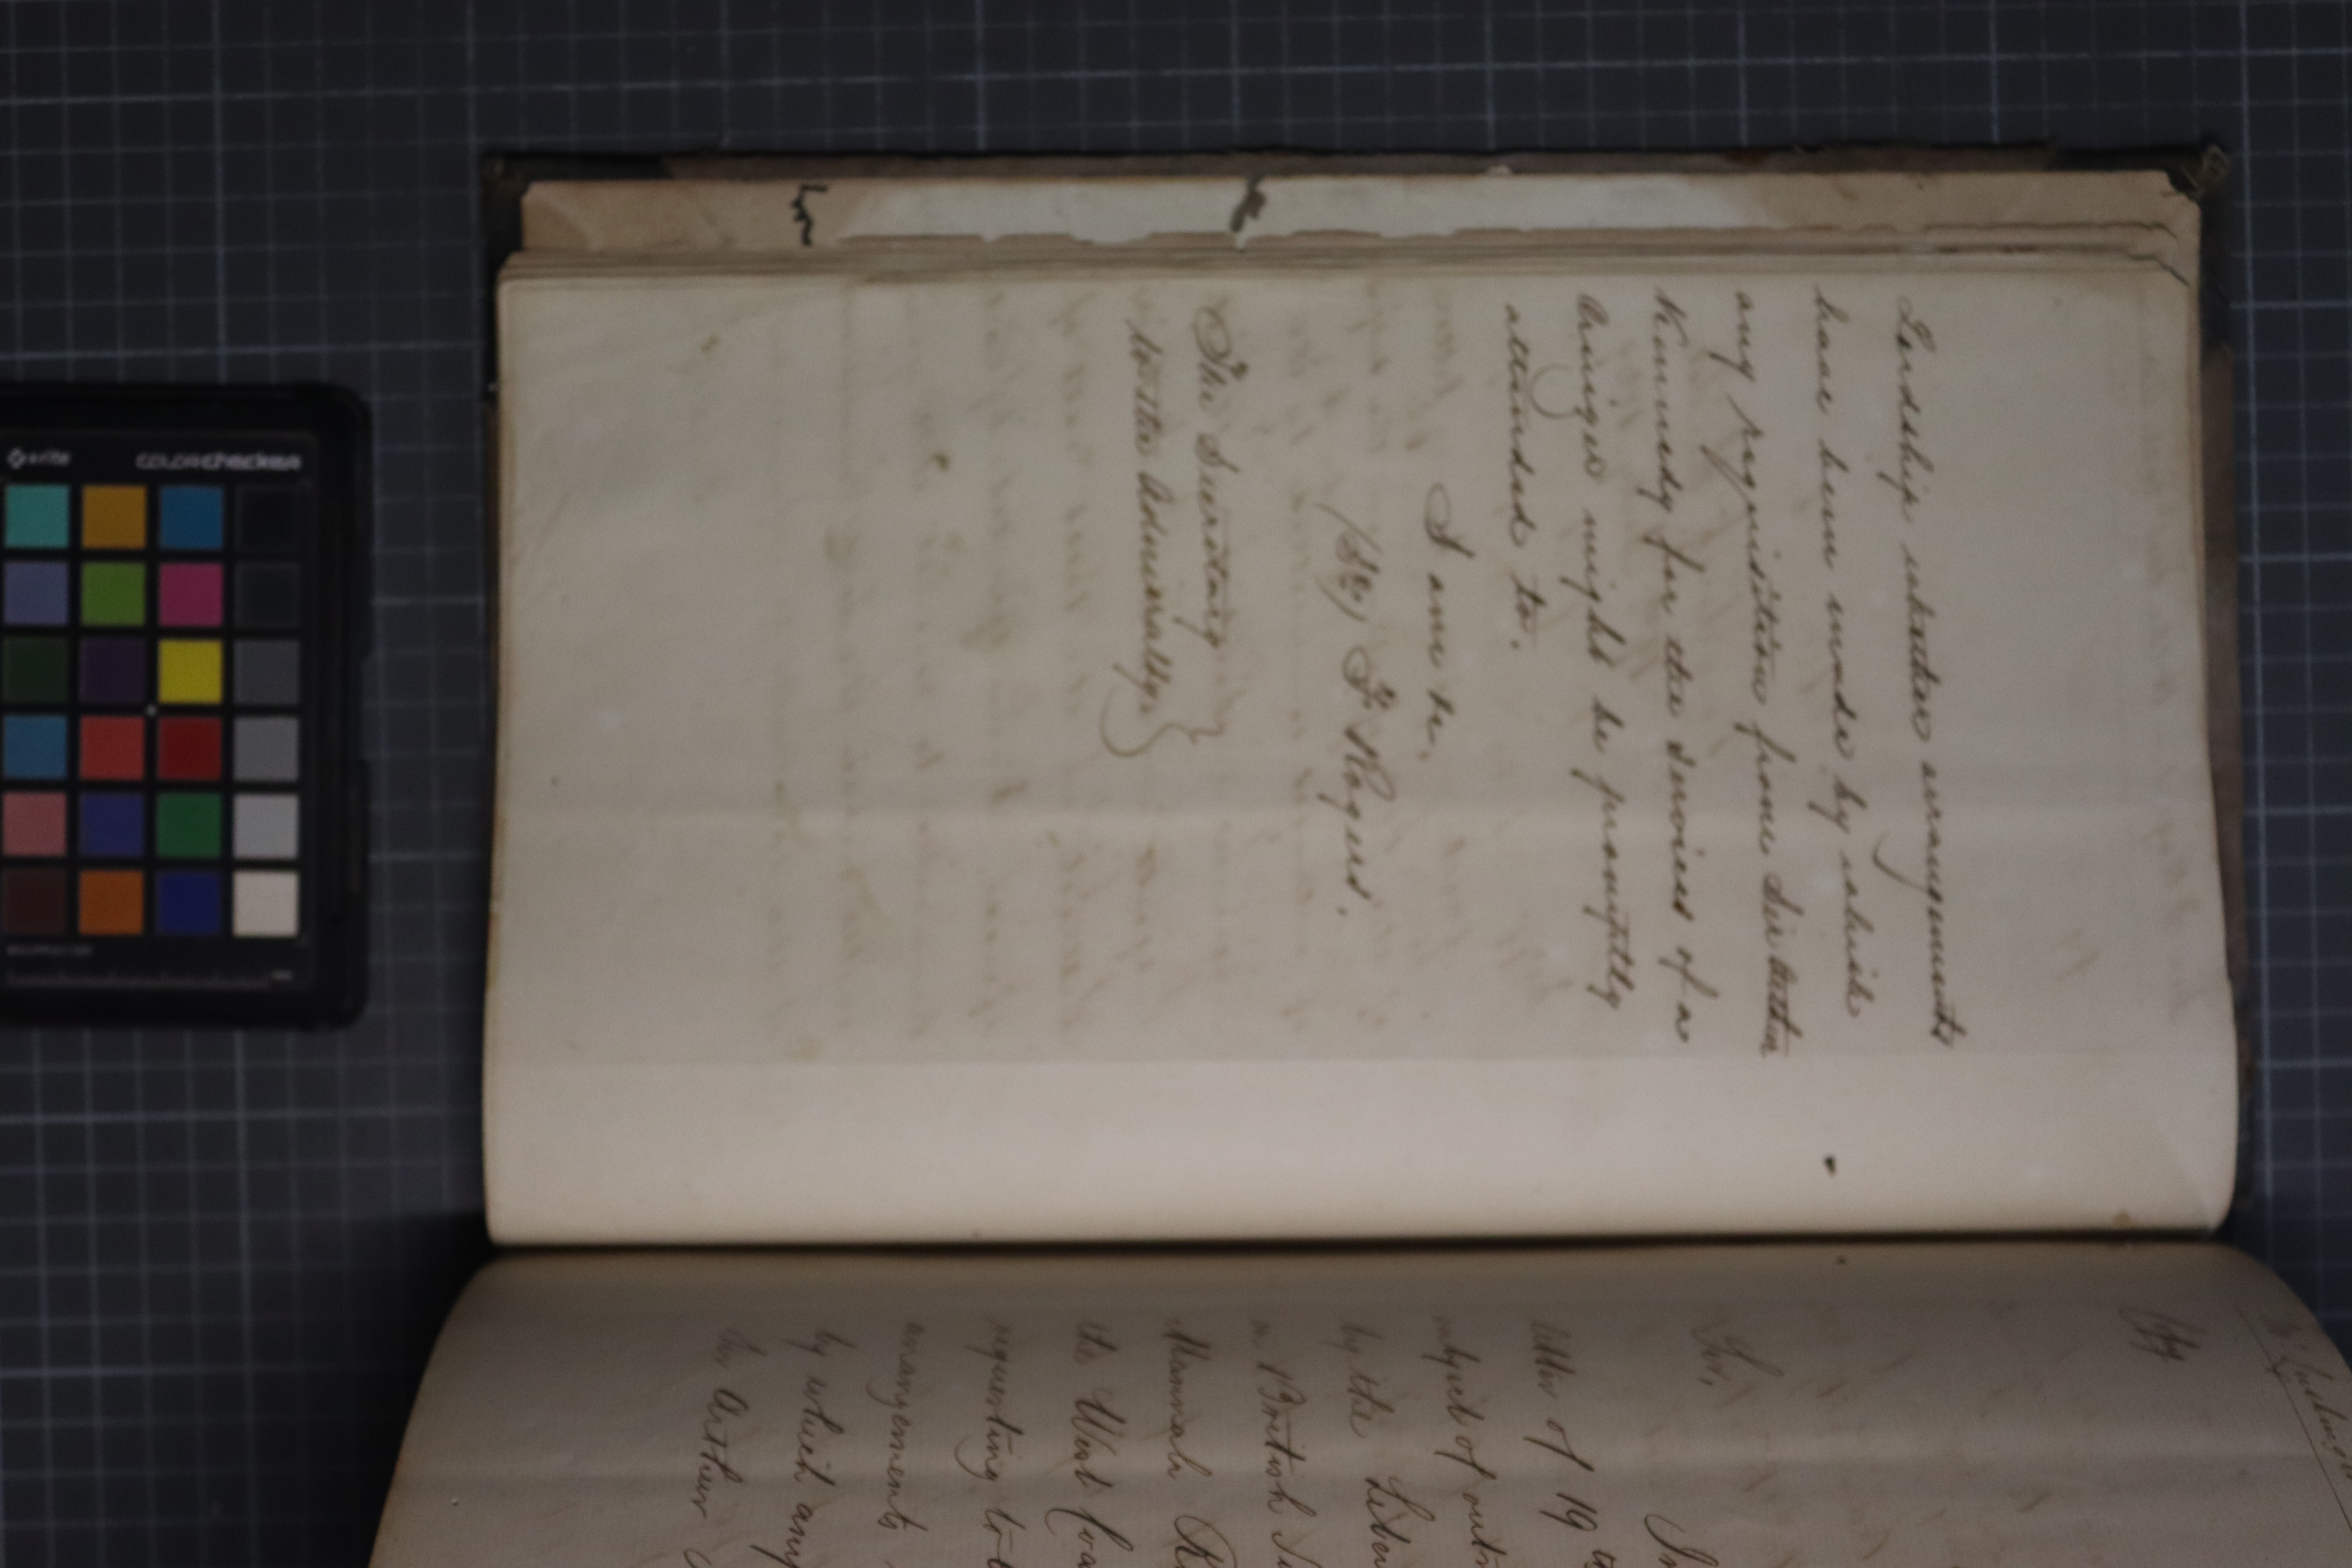 Lordship whether arrangements
have been made by which
any requisition from Sir Arthur
Kennedy for the services of a
cruizer might be promptly
attended to.
I am &c.
(Sd) F Rogers.
The Secretary
to the Admiralty.
Sir,
In
letter of 19
subject of
by the
British
Mannah
the West Coa
requesting
arrangements
by which any
Sir Arthur
x-rite
colorchecker